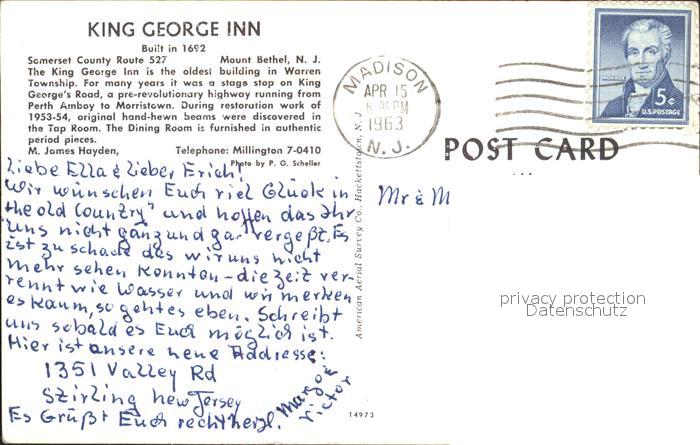 KING GEORGE INN
Built in 1692
Somerset County Route 527 Mount Bethel, N. J.
The King George Inn is the oldest building in Warren
Township. For many years it was a stage stop on King
George's Road, a pre-revolutionary highway running from
Perth Amboy to Morristown. During restoration work of
1953-54, original hand-hewn beams were discovered in
the Tap Room. The Dining Room is furnished in authentic
period pieces.
M. James Hayden, Telephone: Millington 7-0410
Photo by P. O. Scheller
Liebe Ella & lieber Erich!
Wir wünschen Euch viel Glück in
the old Country" und hoffen das Ihr
uns nicht ganz und gar vergeßt. Es
ist zu schade das wir uns nicht
mehr sehen konnten - die Zeit ver-
rennt wie Wasser und wir merken
es kaum, so gehts es eben. Schreibt
uns sobald es Euch möglich ist.
Hier ist unsere neue Addresse:
1351 Valley Rd
Szirling New Jersey
Es Grüßt Euch recht herzl.
Margo &
Victor
14973
American Aerial Survey Co., Hackettstown, N. J.
MADISON
APR 15
PM
1963
N. J.
MONROE
5¢
U.S. POSTAGE
POST CARD
Mr & M
privacy protection
Datenschutz